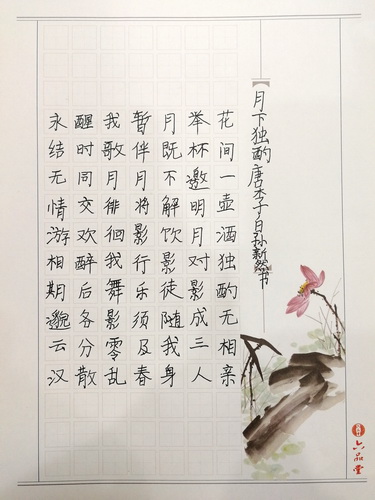 月下独酌唐李白孙新然书
花间一壶酒独酌无相亲
举杯邀明月对影成三人
月既不解饮影徒随我身
暂伴月将影行乐须及春
我歌月徘徊我舞影零乱
醒时同交欢醉后各分散
永结无情游相期邈云汉
六品堂